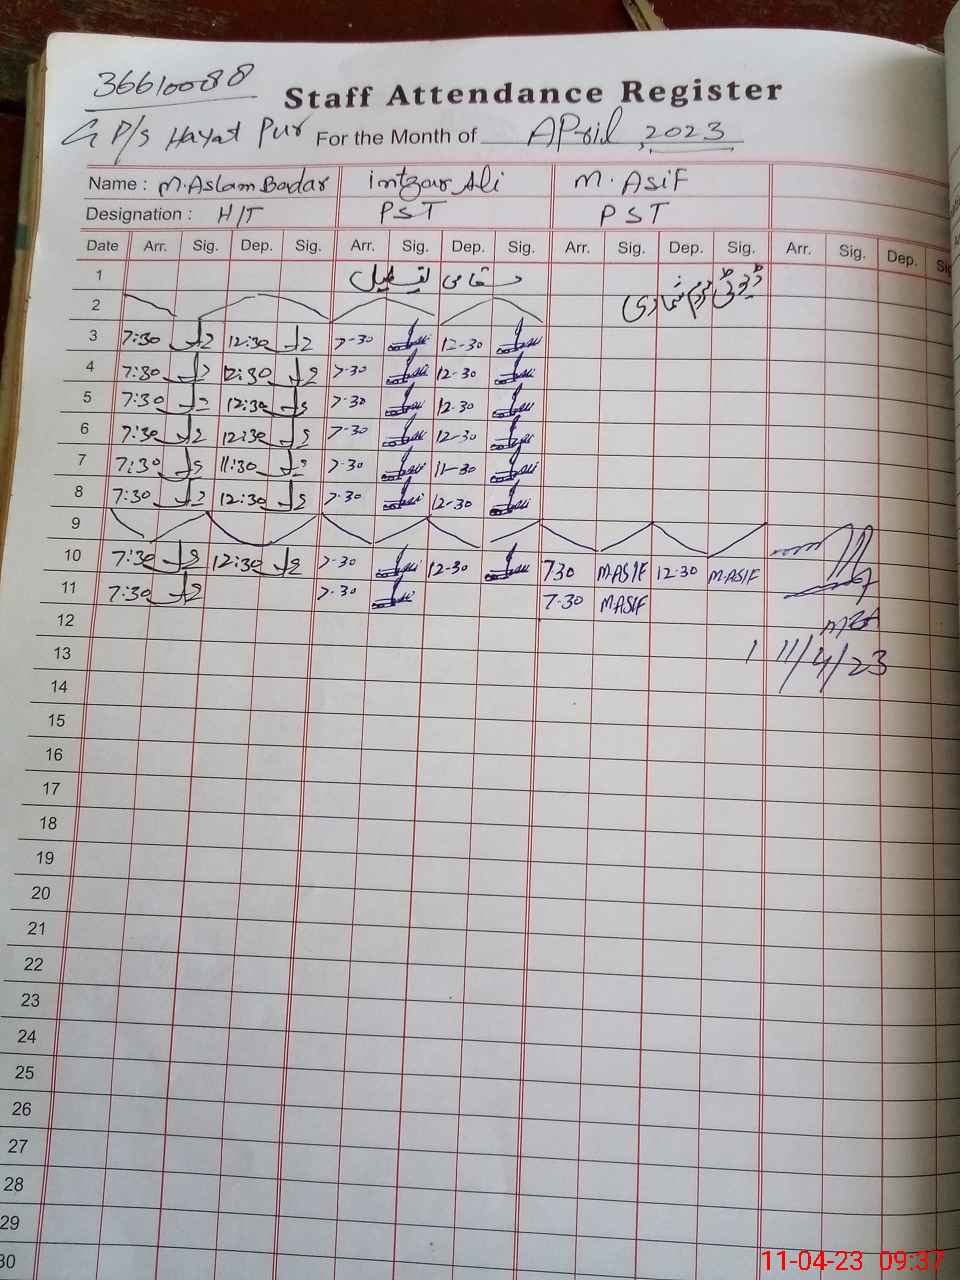 36610088
Staff Attendance Register
G P/S Hayat Pur For the Month of April, 2023
Name : M.Aslam Badar intzar Ali M. ASIF
Designation : H/T PST PST
Date Arr. Sig. Dep. Sig. Arr. Sig. Dep. Sig. Arr. Sig. Dep. Sig. Arr. Sig. Dep. Sig
1 مقامی تعطیل
2 ڈیوٹی مردم شماری
3 7:30 12:30 7-30 12-30
4 7:30 12:30 7-30 12-30
5 7:30 12:30 7-30 12-30
6 7:30 12:30 7-30 12-30
7 7:30 11:30 7-30 11-30
8 7:30 12:30 7-30 12-30
9
10 7:30 12:30 7-30 12-30 730 MASIF 12-30 M-ASIF
11 7:30 7-30 7-30 MASIF
12
13 11/4/23
14
15
16
17
18
19
20
21
22
23
24
25
26
27
28
29
30
11-04-23 09:37